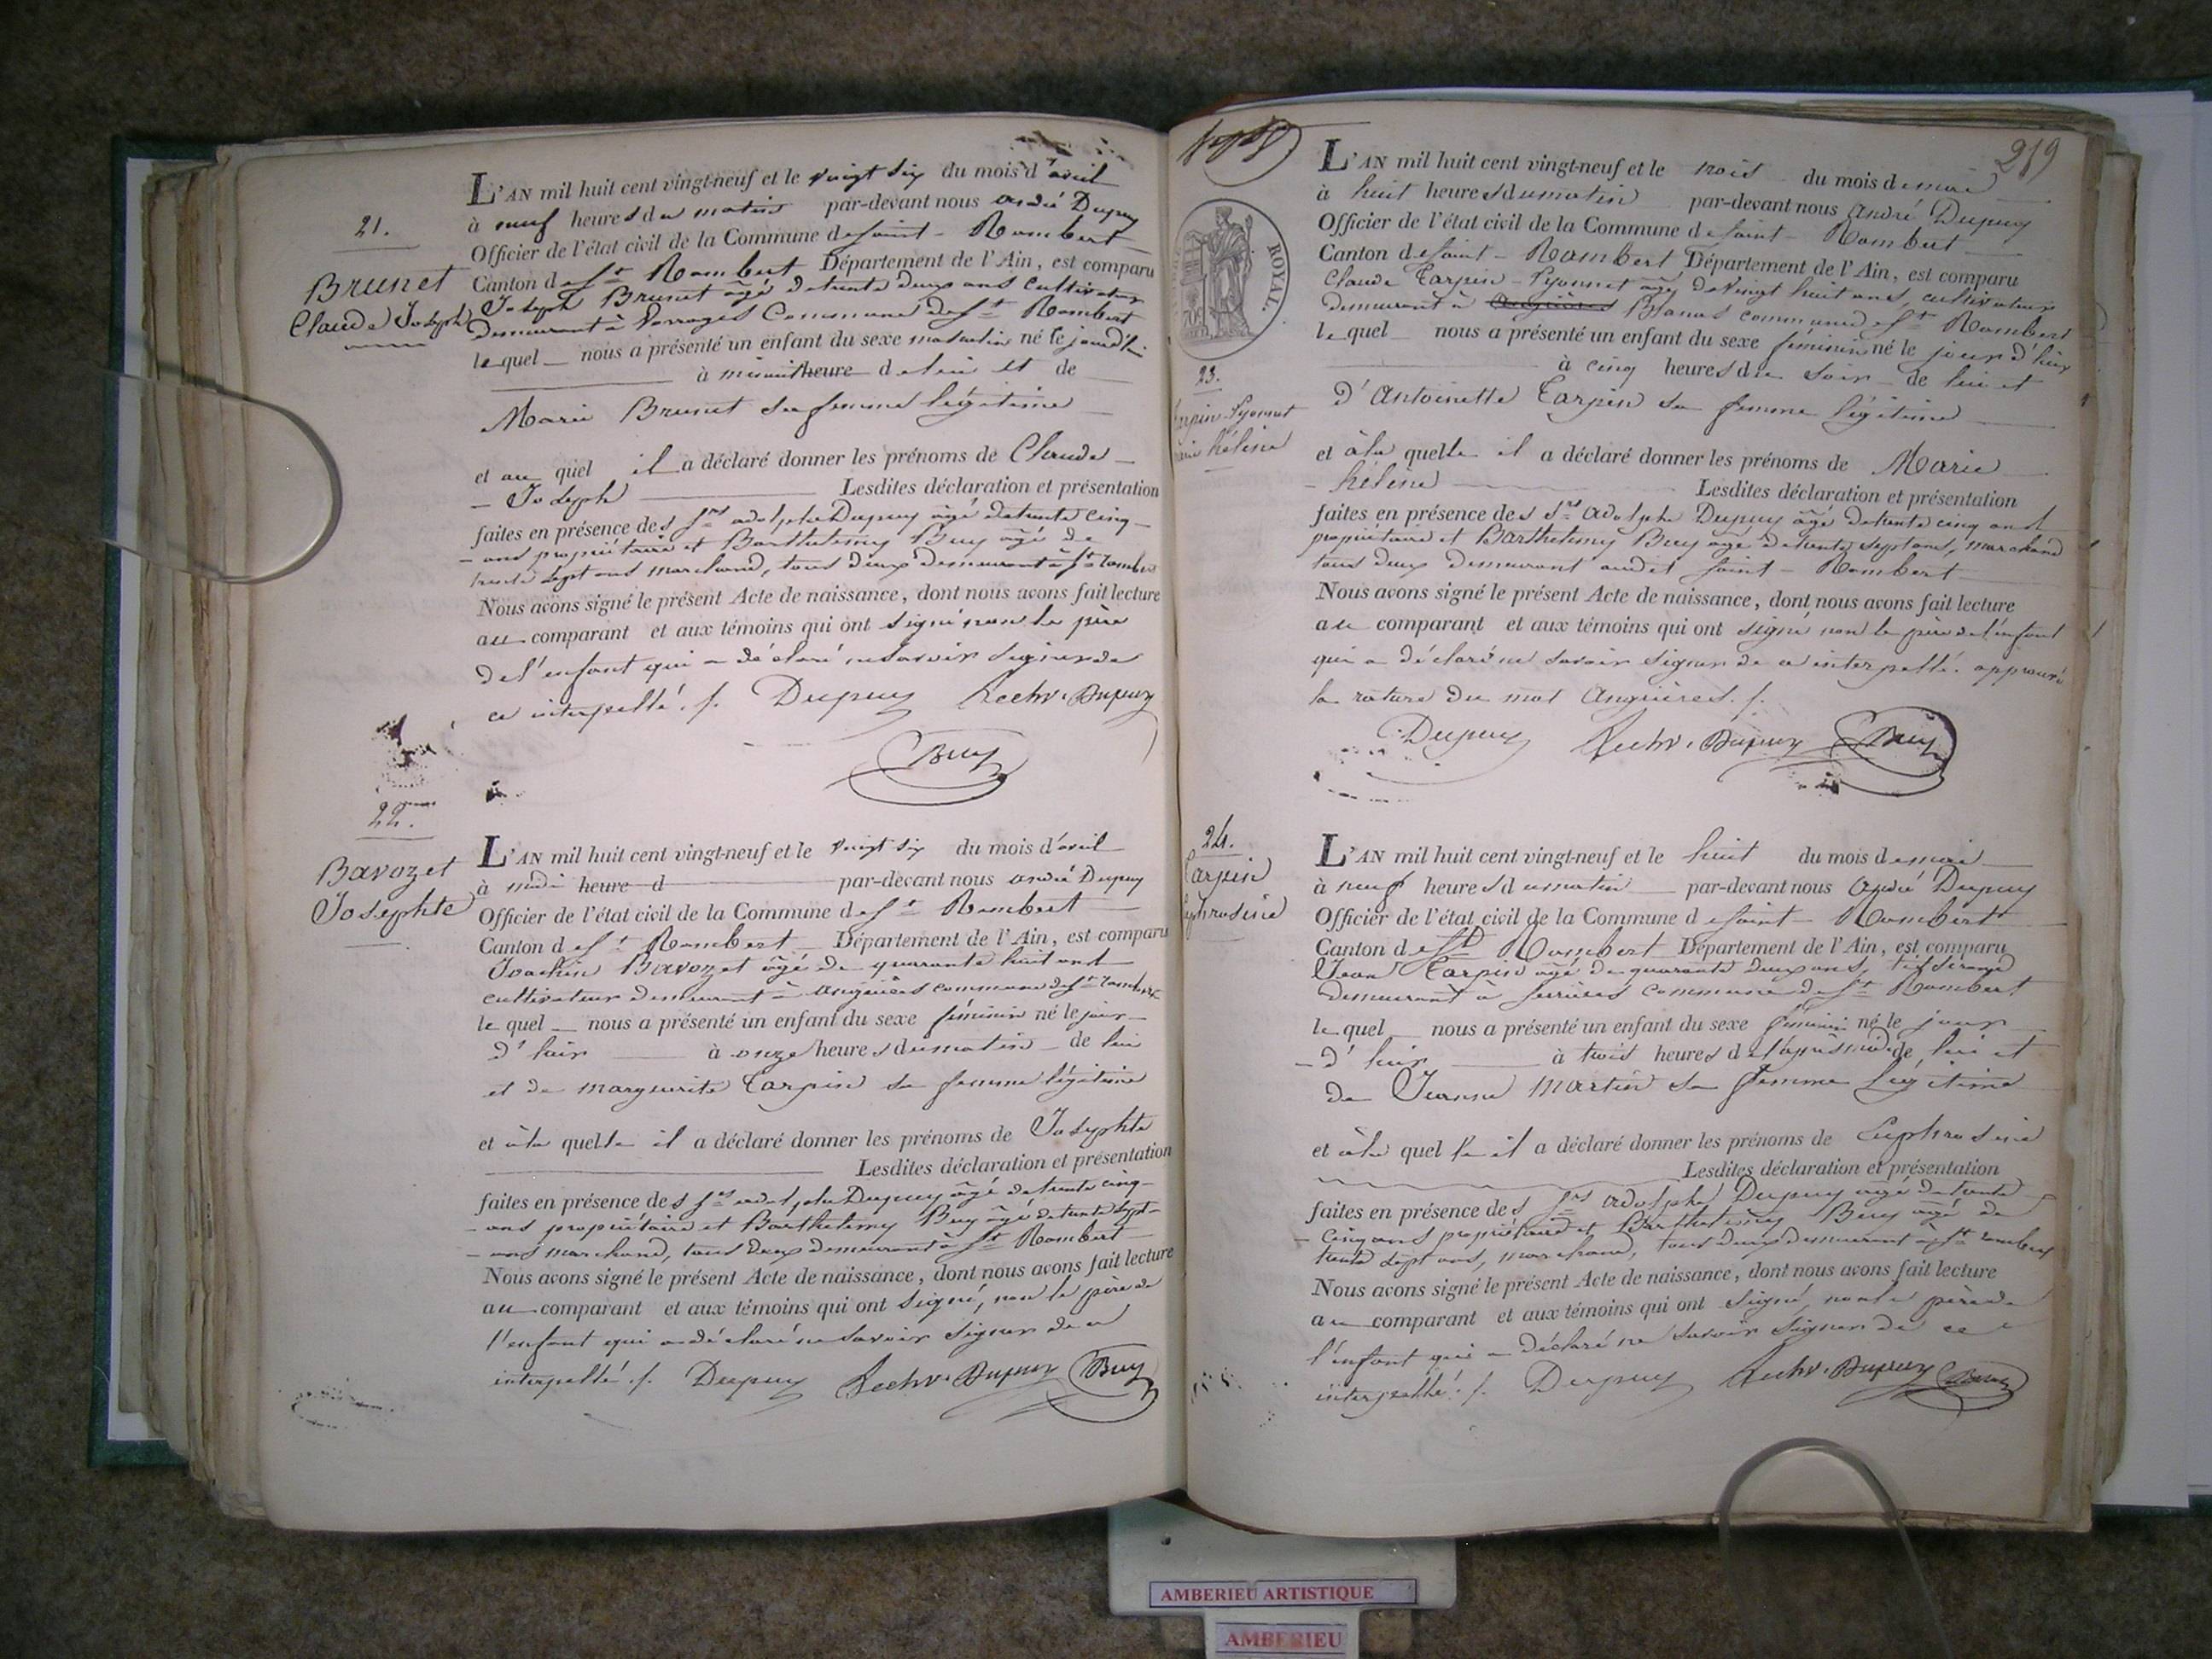 21.
Brunet
Claude Joseph
L'AN mil huit cent vingt-neuf et le vingt six du mois d'avril
à neuf heures du matin par-devant nous andré Dupuy
Officier de l'état civil de la Commune de saint-Rambert
Canton de St Rambert Département de l'Ain, est comparu
Joseph Brunet âgé de trente deux ans cultivateur
demeurant à Vorrages Commune de St Rambert
le quel nous a présenté un enfant du sexe masculin né le jourd'hui
à minuit heure de lui et de
Marie Brunet sa femme légitime
et au quel il a déclaré donner les prénoms de Claude
Joseph Lesdites déclaration et présentation
faites en présence des Srs adolphe Dupuy âgé de trente cinq
ans propriétaire et Barthelemy Buy âgé de
trente sept ans marchand, tous deux demeurant à St rambert
Nous avons signé le présent Acte de naissance, dont nous avons fait lecture
au comparant et aux témoins qui ont signé non le père
de l'enfant qui a déclaré ne savoir signer de
ce interpellé. /. Dupuy Dupuy
Buy
22.
Bavozet
Josephte
L'AN mil huit cent vingt-neuf et le vingt six du mois d'avril
à midi heure d par-devant nous andré Dupuy
Officier de l'état civil de la Commune de St Rambert
Canton de St Rambert Département de l'Ain, est comparu
Joachin Bavozet âgé de quarante huit ans
cultivateur demeurant à angrières commune de St rambert
le quel nous a présenté un enfant du sexe féminin né le jour
d'hier à onze heures du matin de lui
et de marguerite Carpin sa femme légitime
et à la quelle il a déclaré donner les prénoms de Josephte
Lesdites déclaration et présentation
faites en présence des Srs adolphe Dupuy âgé de trente cinq
ans propriétaire et Barthelemy Buy âgé de trente sept
ans marchand, tous deux demeurant à St Rambert
Nous avons signé le présent Acte de naissance, dont nous avons fait lecture
au comparant et aux témoins qui ont signé, non le père de
l'enfant qui a déclaré ne savoir signer de ce
interpellé. /. Dupuy Dupuy Buy
219
ROYAL.
23.
arpin-Lyonnet
hélène
L'AN mil huit cent vingt-neuf et le trois du mois de mai
à huit heures du matin par-devant nous andré Dupuy
Officier de l'état civil de la Commune de saint-Rambert
Canton de saint-Rambert Département de l'Ain, est comparu
Claude Carpin-Lyonnet âgé de vingt huit ans, cultivateur
demeurant à angrières Blanas commune de St Rambert
le quel nous a présenté un enfant du sexe féminin né le jour d'hier
à cinq heures du soir de lui et
d'Antoinette Carpin sa femme légitime
et à la quelle il a déclaré donner les prénoms de Marie
hélène Lesdites déclaration et présentation
faites en présence des Srs adolphe Dupuy âgé de trente cinq ans
propriétaire et Barthelemy Buy âgé de trente sept ans, marchand
tous deux demeurant audit saint-Rambert
Nous avons signé le présent Acte de naissance, dont nous avons fait lecture
au comparant et aux témoins qui ont signé non le père de l'enfant
qui a déclaré ne savoir signer de ce interpellé. approuvé
la rature du mot angrières. /.
Dupuy Dupuy Buy
24.
Carpin
Euphrosine
L'AN mil huit cent vingt-neuf et le huit du mois de mai
à neuf heures du matin par-devant nous andré Dupuy
Officier de l'état civil de la Commune de saint-Rambert
Canton de St Rambert Département de l'Ain, est comparu
Jean Carpin âgé de quarante deux ans, tisserand
demeurant à serrières commune de St Rambert
le quel nous a présenté un enfant du sexe féminin né le jour
d'hier à trois heures de l'après midi de lui et
de Jeanne Martin sa femme légitime
et à la quelle il a déclaré donner les prénoms de Euphrosine
Lesdites déclaration et présentation
faites en présence des Srs adolphe Dupuy agé de trente
cinq ans propriétaire et Barthelemy Buy agé de
trente sept ans, marchand, tous deux demeurant à St rambert
Nous avons signé le présent Acte de naissance, dont nous avons fait lecture
au comparant et aux témoins qui ont signé, non le père de
l'enfant qui a déclaré ne savoir signer de ce
interpellé. /. Dupuy Dupuy Buy
AMBERIEU ARTISTIQUE
AMBERIEU